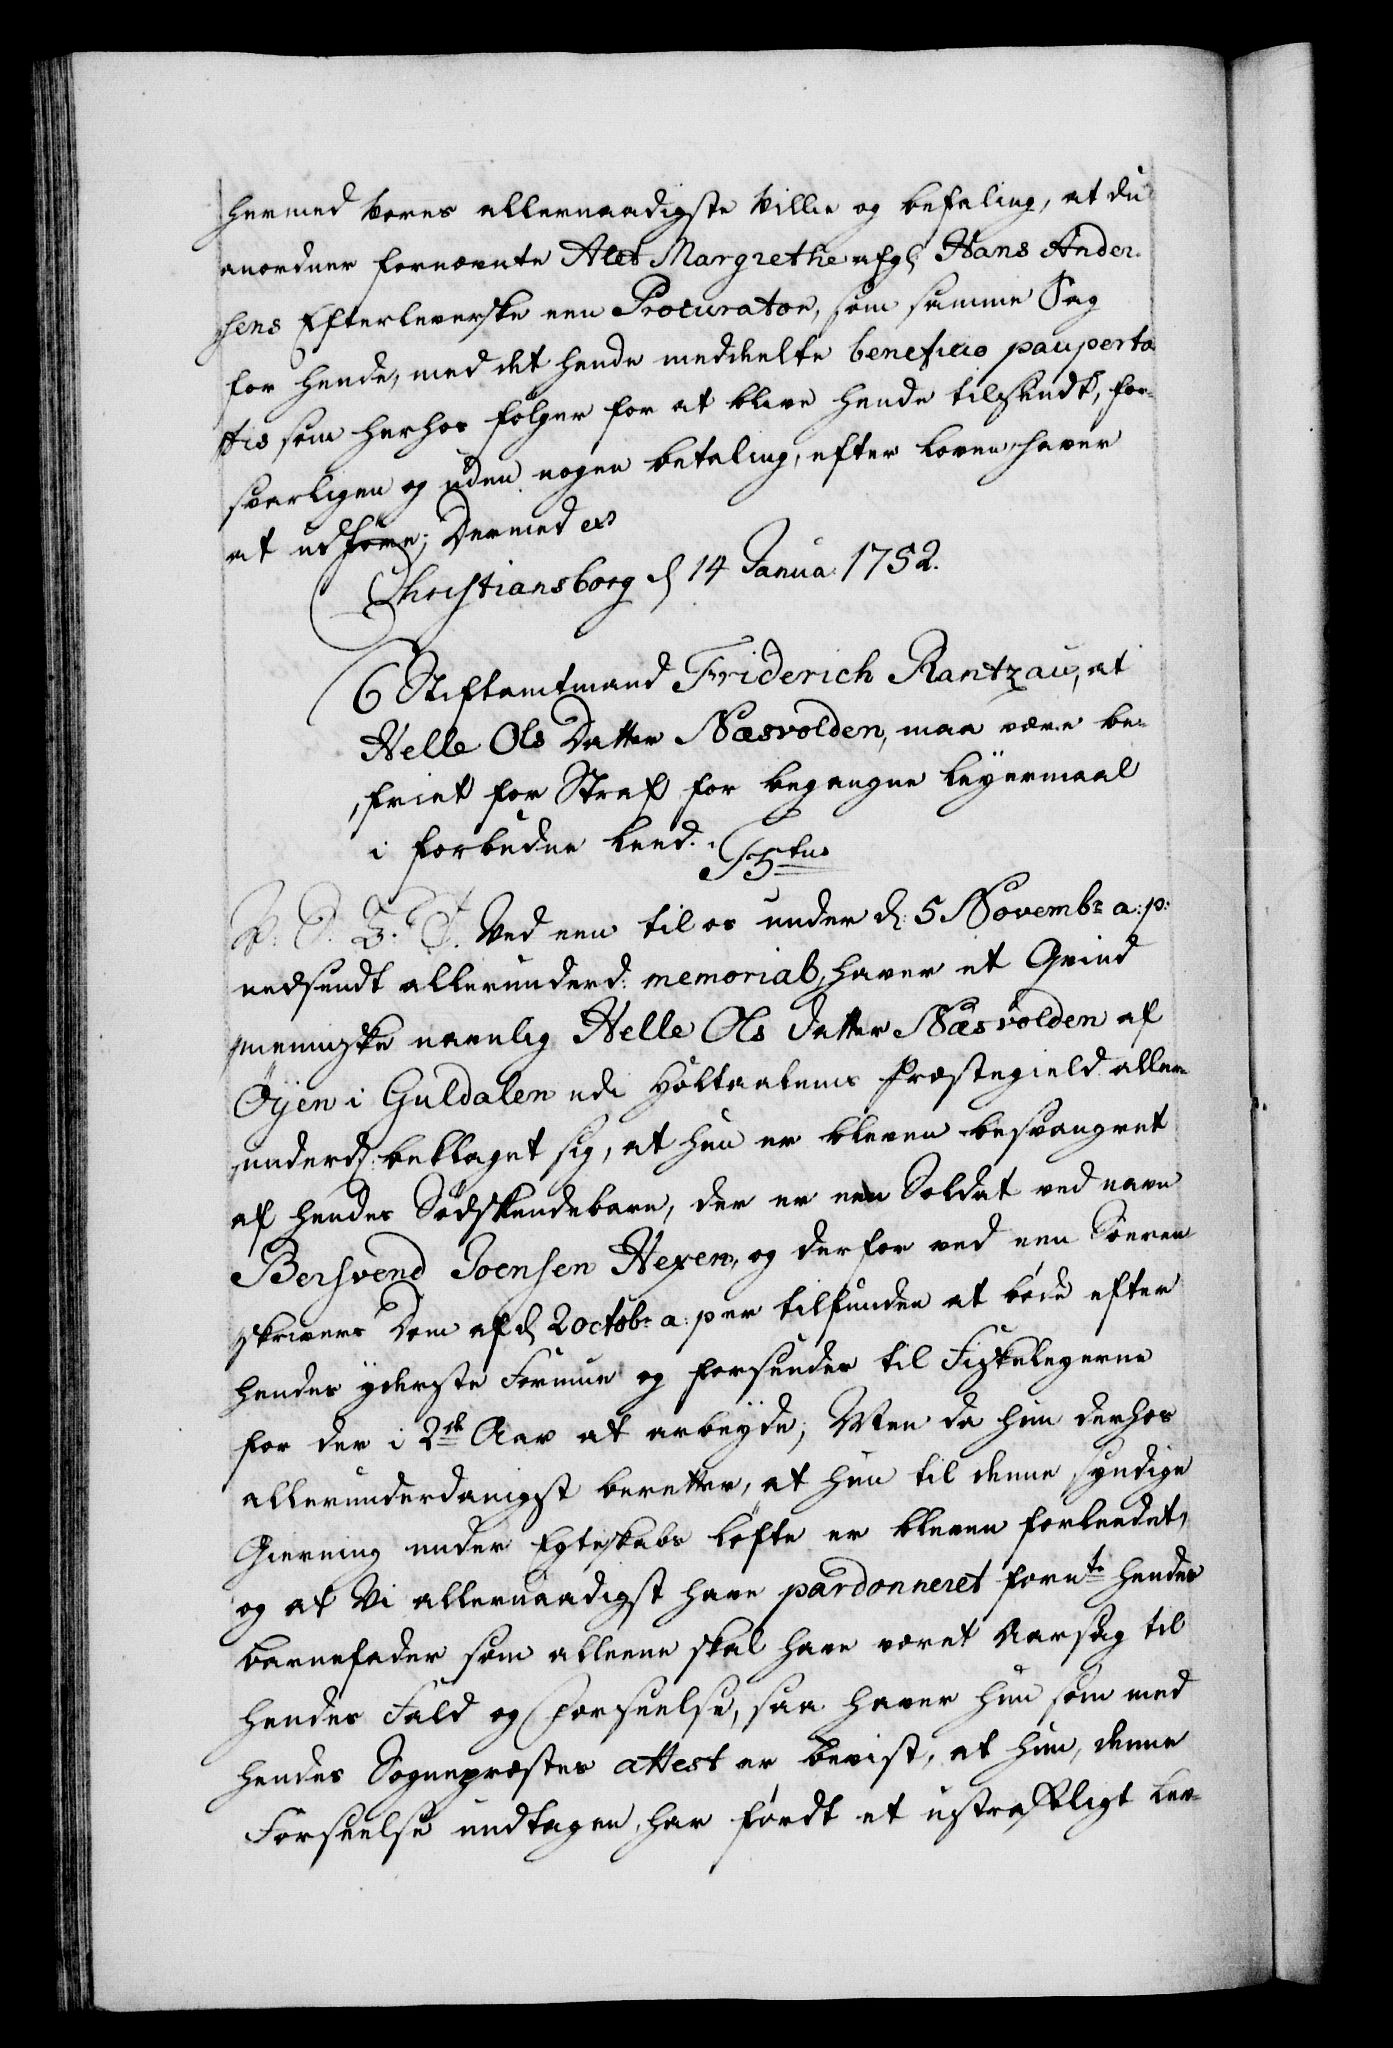 hermed Vores allernaadigste Villie og befaling, at du
anordner fornævnte Alet Margrethe afg: Hans Ander-
sens Efterleverske een Procurator, som samme Sag
for hende, med det hende meddeelte beneficio pauperta-
tis som herhos følger for at blive hende tilsendt, for-
svarligen og uden nogen betaling, efter loven haver
at udføre; Dermed es
Christiansborg d 14 Janua: 1752.
6 Stiftamtmand Friderich Rantzau, at
Helle Ols Datter Næsvolden, maa være be-
friet for Straf for begangne leyermaal
i forbudne leed.
F 5tus
Ved een til os under d: 5 Novembr a: p:
nedsendt allerunderd: memorial, haver et Qvind
menniske navnlig Helle Ols datter Næsvolden af
Øyen i Guldalen udi Holtaalens Præstegield aller-
underd: beklaget sig, at hun er bleven besvangret
af hendes Sødskendebarn, der er een Soldat ved navn
Bersvend Joensen Hexem, og derfor ved een Soren
skrivers Dom af d 2 octobr a: p er tilfunden at bøde efter
hendes yderste Formue og forsendes til Fiskelegerne
for der i 2de Aar at arbeyde; Men da hun derhos
allerunderdanigst beretter, at hun til denne syndige
Gierning under Egteskabs løfte er bleven forleedet,
og at Vi allernaadigst have pardonneret fornte hendes
barnefader som alleene skal have været Aarsag til
hendes Fald og Forseelse, saa haver hun som med
hendes Sognepræstes attest er bevist, at hun, denne
Forseelse undtagen, har ført et ustraffeligt lev-